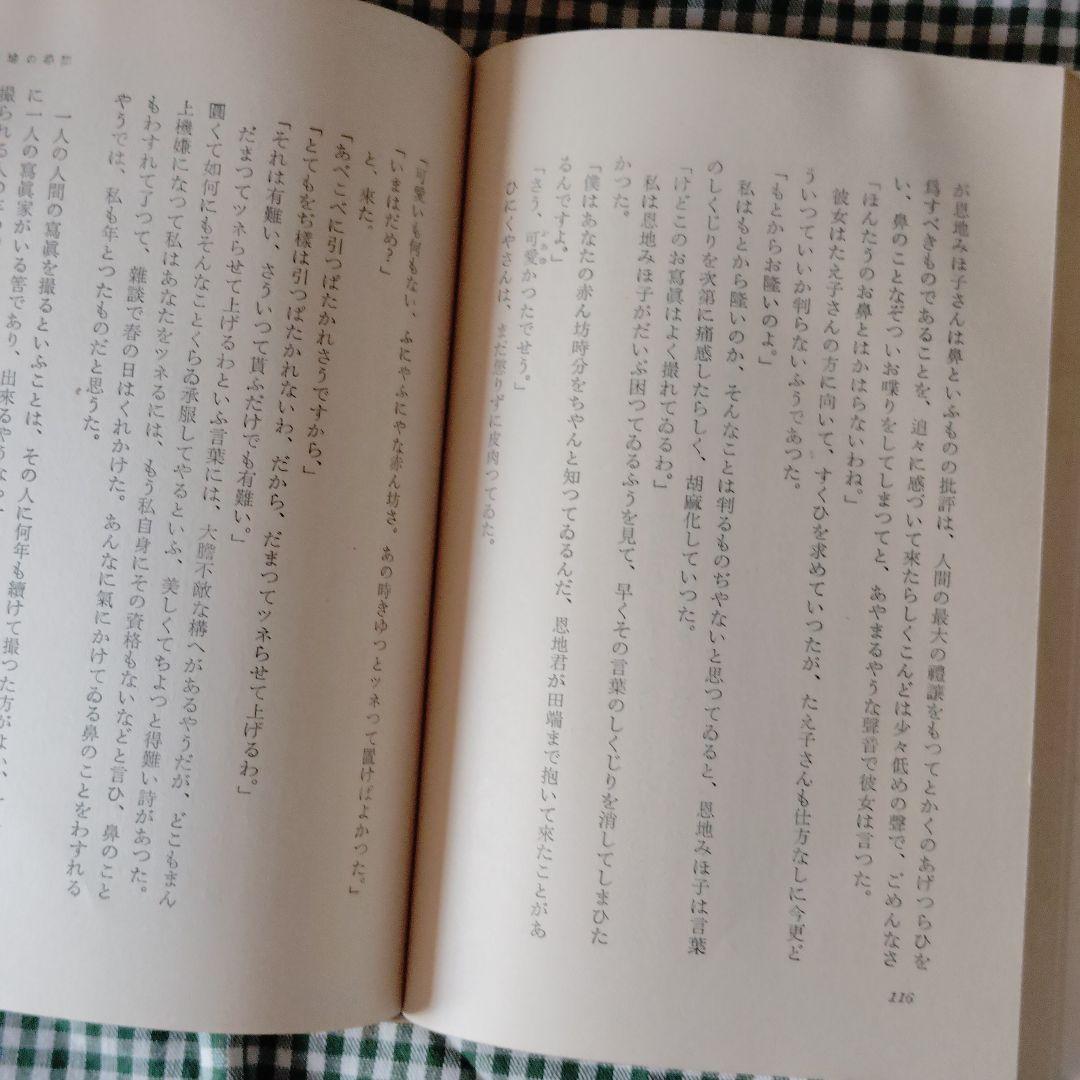 が恩地みほ子さんは鼻といふものの批評は、人間の最大の禮讓をもつてとかくのあげつらひを
爲すべきものであることを、追々に感づいて来たらしくこんどは少々低めの聲で、ごめんなさ
い、鼻のことなぞついお喋りをしてしまつてと、あやまるやうな聲音で彼女は言つた。
「ほんたうのお鼻とはかはらないわね。」
彼女はたえ子さんの方に向いて、すくひを求めていつたが、たえ子さんも仕方なしに今更ど
ういつていいか判らないふうであつた。
「もとからお隆いのよ。」
私はもとから隆いのか、そんなことは判るものぢやないと思つてゐると、恩地みほ子は言葉
のしくじりを次第に痛感したらしく、胡麻化していつた。
「けどこのお寫眞はよく撮れてゐるわ。」
私は恩地みほ子がだいぶ困つてゐるふうを見て、早くその言葉のしくじりを消してしまひた
かつた。
「僕はあなたの赤ん坊時分をちやんと知つてゐるんだ、恩地君が田端まで抱いて來たことがあ
るんですよ。」
「さう、可愛かつたでせう。」
ひにくやさんは、まだ懲りずに皮肉つてゐた。
116
「可愛いも何もない、ふにやふにやな赤ん坊さ。あの時きゆつとツネつて置けばよかつた。」
「いまはだめ？」
と、來た。
「あべこべに引つぱたかれさうですから、」
「とてもをぢ様は引つぱたかれないわ、だから、だまつてツネらせて上げるわ。」
「それは有難い、さういつて貰ふだけでも有難い。」
だまつてツネらせて上げるわといふ言葉には、大膽不敵な構へがあるやうだが、どこもまん
圓くて如何にもそんなことくらゐ承服してやるといふ、美しくてちよつと得難い詩があつた。
上機嫌になつて私はあなたをツネるには、もう私自身にその資格もないなどと言ひ、鼻のこと
もわすれて了つて、雜談で春の日はくれかけた。あんなに氣にかけてゐる鼻のことをわすれる
やうでは、私も年とつたものだと思うた。
一人の人間の寫眞を撮るといふことは、その人に何年も續けて撮つた方がよい、
に一人の寫眞家がいる筈であり、出來るやうなら
撮られる人の